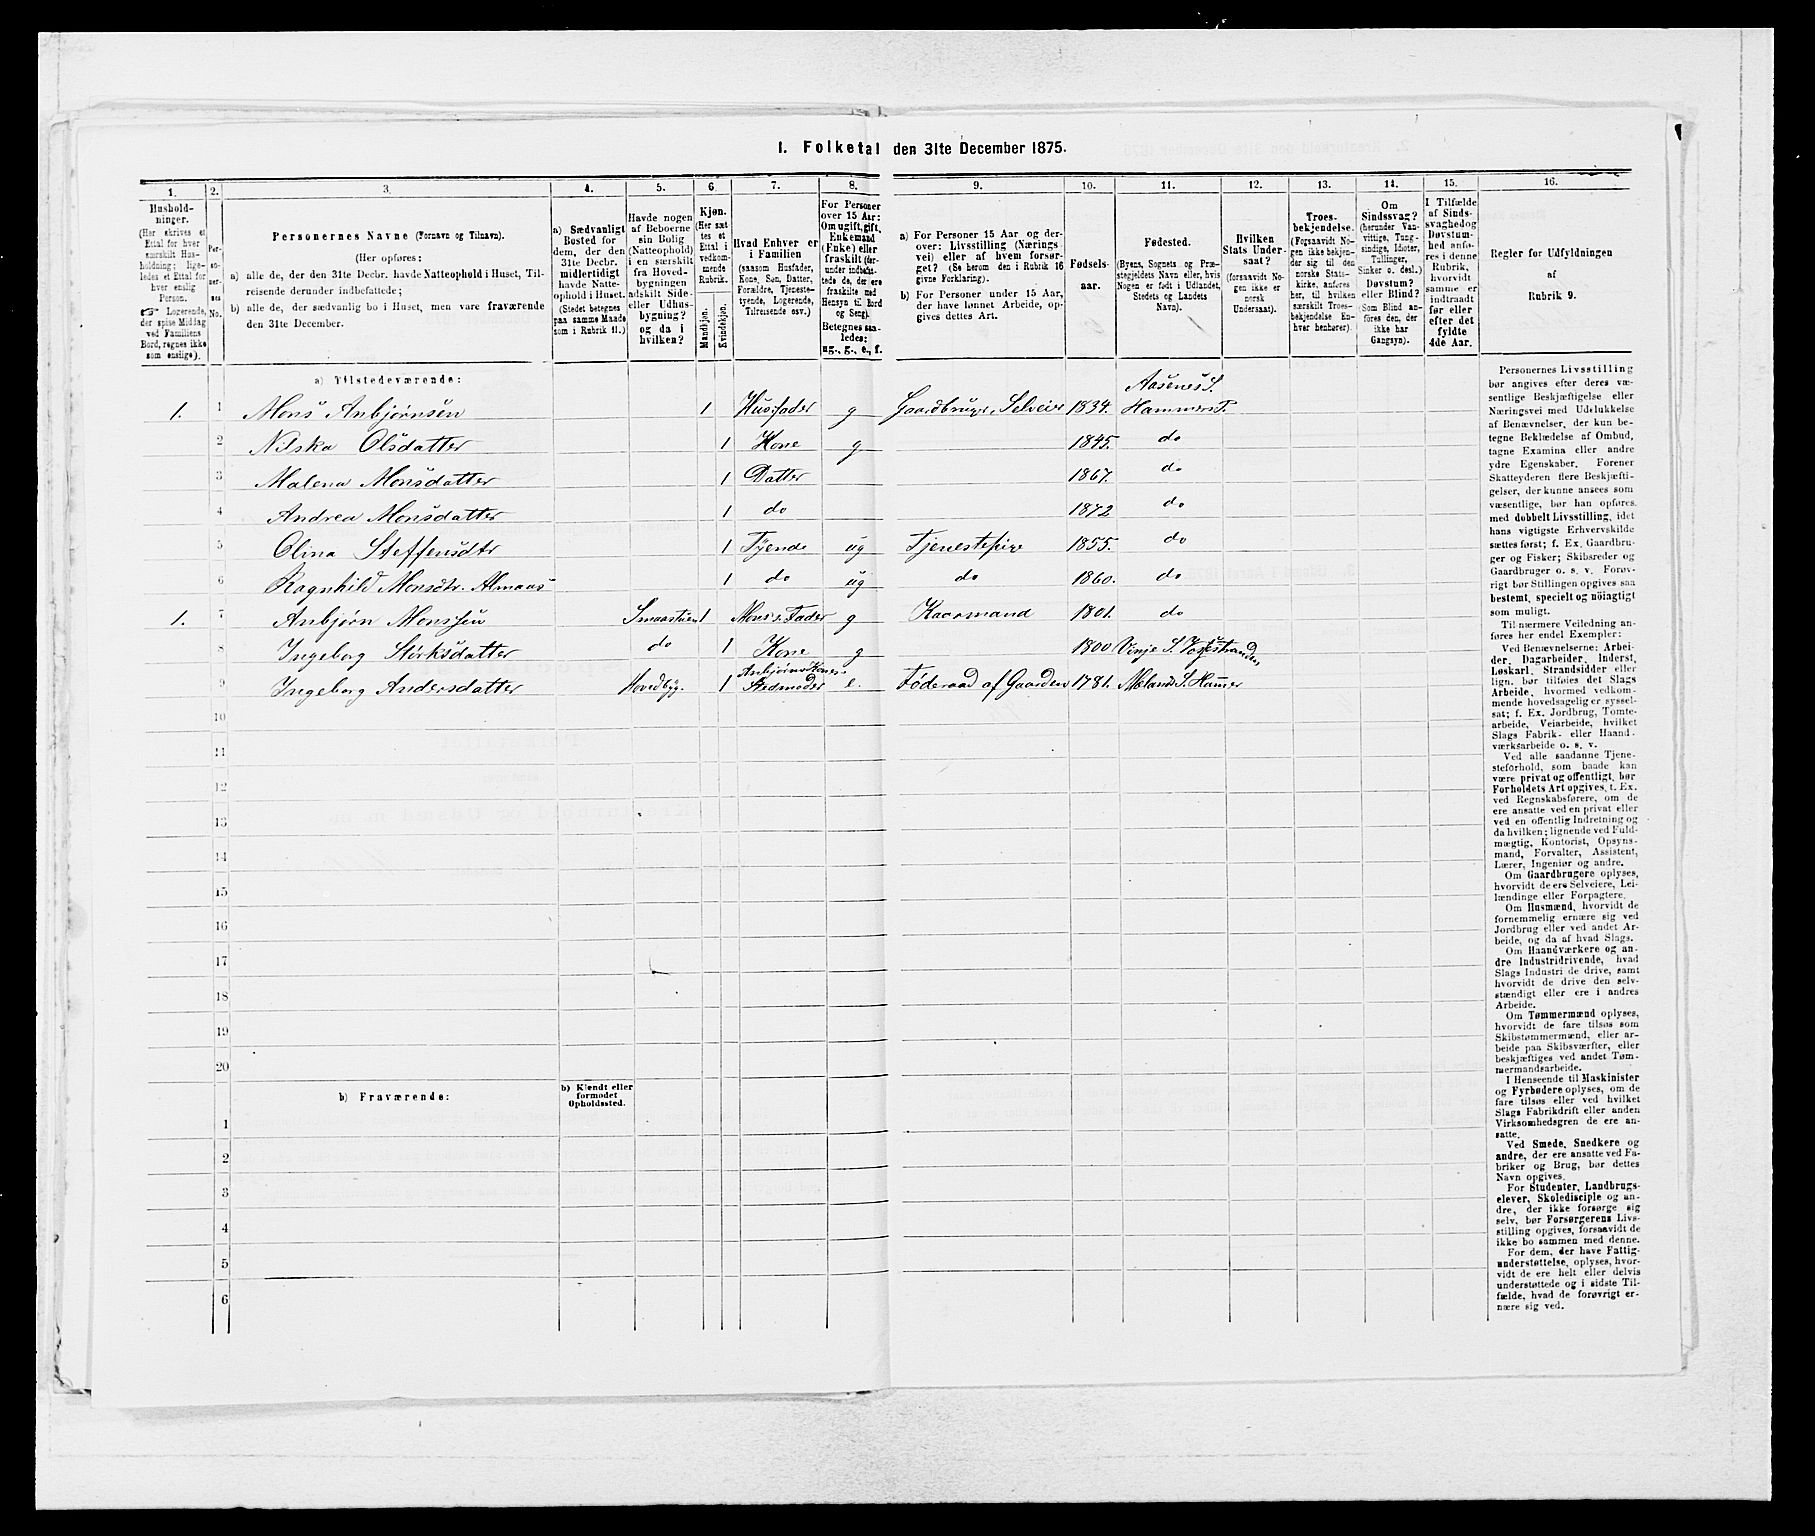 I. Folketal den 31te December 1875.
1. 2. 3. 4. 5. 6. 7. 8. 9. 10. 11. 12. 13. 14. 15. 16.
Husholdninger. (Her skrives et Ettal for hver særskilt Husholdning; ligeledes et Ettal for hver enslig Person.
☞ Logerende, der spise Middag ved Familiens Bord, regnes ikke som enslige).
Personernes No.
Personernes Navne (Fornavn og Tilnavn).
(Her opføres:
a) alle de, der den 31te Decbr. havde Natteophold i Huset, Tilreisende derunder indbefattede;
b) alle de, der sædvanlig bo i Huset, men vare fraværende den 31te December.
a) Sædvanligt Bosted for dem, der den 31te Decbr. midlertidigt havde Natteophold i Huset. (Stedet betegnes paa samme Maade som i Rubrik 11.)
Havde nogen af Beboerne sin Bolig (Natteophold) i en særskilt fra Hovedbygningen adskilt Side- eller Udhusbygning? og da i hvilken?
Kjøn. (Her sættes et Ettal i vedkommende Rubrik. Mandkjøn. Kvindekjøn.
Hvad Enhver er i Familien (saasom Husfader, Kone, Søn, Datter, Forældre, Tjenestetyende, Logerende, Tilreisende osv.)
For Personer over 15 Aar: Om ugift, gift, Enkemand (Enke) eller fraskilt (herunder indbefattede de, der ere fraskilte med Hensyn til Bord og Seng). Betegnes saaledes: ug., g., e., f.
a) For Personer 15 Aar og derover: Livsstilling (Næringsvei) eller af hvem forsørget? (Se herom den i Rubrik 16 givne Forklaring).
b) For Personer under 15 Aar, der have lønnet Arbeide, opgives dettes Art.
Fødselsaar.
Fødested. (Byens, Sognets og Præstegjeldets Navn eller, hvis Nogen er født i Udlandet, Stedets og Landets Navn).
Hvilken Stats Undersaat? (forsaavidt Nogen ikke er norsk Undersaat).
Troesbekjendelse. (Forsaavidt Nogen ikke bekjender sig til den norske Statskirke, anføres her, til hvilken særskilt Troesbekjendelse Enhver henhører).
Om Sindssvag? (herunder Vanvittige, Tungsindige, Idioter, Tullinger, Sinker o. desl.) Døvstum? eller Blind? (Som Blind anføres den, der ikke har Gangsyn).
I Tilfælde af Sindssvaghed og Døvstumhed anføres i denne Rubrik, hvorvidt samme er indtraadt før eller efter det fyldte 4de Aar.
Regler for Udfyldningen af Rubrik 9.
a) Tilstedeværende:
1. 1 Mons Anbjørnsen 1 Husfader g Gaardbruger, Selveier 1834. Aasene S. Hammers P.
2 Nilska Olsdatter 1 Kone g 1845. do
3 Malena Monsdatter 1 Datter 1867. do
4 Andrea Monsdatter 1 do 1872 do
5 Olina Steffensdtr 1 Tyende ug Tjenestepige 1855. do
6 Ragnhild Monsdtr. Almaas 1 do ug do 1860. do
1. 7 Anbjørn Monssen Smaastuen 1 Mons's Fader g Kaarmand 1801. do
8 Ingeborg Størksdatter do 1 Kone g 1800 Vinje S. Vossestranden
9 Ingeborg Andersdatter Hovedbyg. 1 Anbjørns Kones Stedmoder e. Føderaad af Gaarden 1781. Mælands S. Hammer
10
11
12
13
14
15
16
17
18
19
20
b) Fraværende:
b) Kjendt eller formodet Opholdssted.
1
2
3
4
5
6
Personernes Livsstilling
bør angives efter deres væ-
sentlige Beskjæftigelse eller
Næringsvei med Udelukkelse
af Benævnelser, der kun be-
tegne Beklædelse af Ombud,
tagne Examina eller andre
ydre Egenskaber. Forener
Skatteyderen flere Beskjæfti-
gelser, der kunne ansees som
væsentlige, bør han opføres
med dobbelt Livsstilling, idet
hans vigtigste Erhvervskilde
sættes først; f. Ex. Gaardbru-
ger og Fisker; Skibsreder og
Gaardbruger o. s. v. Forøv-
rigt bør Stillingen opgives saa
bestemt, specielt og nöiagtigt
som muligt.
Til nærmere Veiledning an-
føres her endel Exempler:
Ved Benævnelserne: Arbei-
der, Dagarbeider, Inderst,
Løskarl, Strandsidder eller
lign. bør tilføies det Slags
Arbeide, hvormed vedkom-
mende hovedsagelig er syssel-
sat; f. Ex. Jordbrug, Tomte-
arbeide, Veiarbeide, hvilket
Slags Fabrik- eller Haand-
værksarbeide o. s. v.
Ved alle saadanne Tjene-
steforhold, som baade kan
være privat og offentligt, bør
Forholdets Art opgives, t. Ex.
ved Regnskabsførere, om de
ere ansatte ved en privat eller
ved en offentlig Indretning og
da hvilken; lignende ved Fuld-
mægtig, Kontorist, Opsyns-
mand, Forvalter, Assistent,
Lærer, Ingeniør og andre.
Om Gaardbrugere oplyses,
hvorvidt de ere Selveiere, Lei-
lændinge eller Forpagtere.
Om Husmænd, hvorvidt de
fornemmelig ernære sig ved
Jordbrug eller ved andet Ar-
beide, og da af hvad Slags.
Om Haandværkere og an-
dre Industridrivende, hvad
Slags Industri de drive, samt
hvorvidt de drive den selv-
stændigt eller ere i andres
Arbeide.
Om Tømmermænd oplyses,
hvorvidt de fare tilsøs som
Skibstømmermænd, eller ar-
beide paa Skibsværfter, eller
beskjæftiges ved andet Tøm-
mermandsarbeide.
I Henseende til Maskinister
og Fyrbødere oplyses, om de
fare tilsøs eller ved hvilket
Slags Fabrikdrift eller anden
Virksomhedsgren de ere an-
satte.
Ved Smede, Snedkere og
andre, der ere ansatte ved Fa-
briker og Brug, bør dettes
Navn opgives.
For Studenter, Landbrugs-
elever, Skoledisciple og an-
dre, der ikke forsørge sig
selv, bør Forsørgerens Livs-
stilling opgives, forsaavidt de
ikke bo sammen med denne.
For dem, der have Fattig-
understøttelse, oplyses, hvor-
vidt de ere helt eller delvis
understøttede og i sidste Til-
fælde, hvad de forøvrigt er-
nære sig ved.